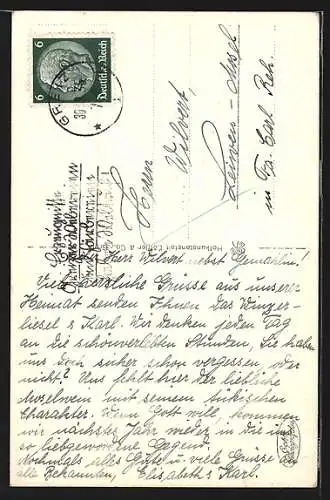 6
Deutsches Reich
GREIZ
30
Herrn
Wilvert,
Leiwen-Mosel
in Fa. Carl Reh.
Hofkunstanstalt Löffler & Co.
Herr Wilvert nebst Gemahlin!
Viele herzliche Grüsse aus unserer
Heimat senden Ihnen das Winzer-
liesel & Karl. Wir denken jeden Tag
an die schönverlebten Stunden, Sie haben
uns doch sicher schon vergessen, oder
nicht? Uns fehlt hier der liebliche
Moselwein mit seinem tükischen
Charakter. Wenn Gott will, kommen
wir nächstes Jahr wieder in die uns
so liebgewordene Gegend.
Nochmals alles Gute u. viele Grüsse an
alle Bekannten, Elisabeth & Karl.